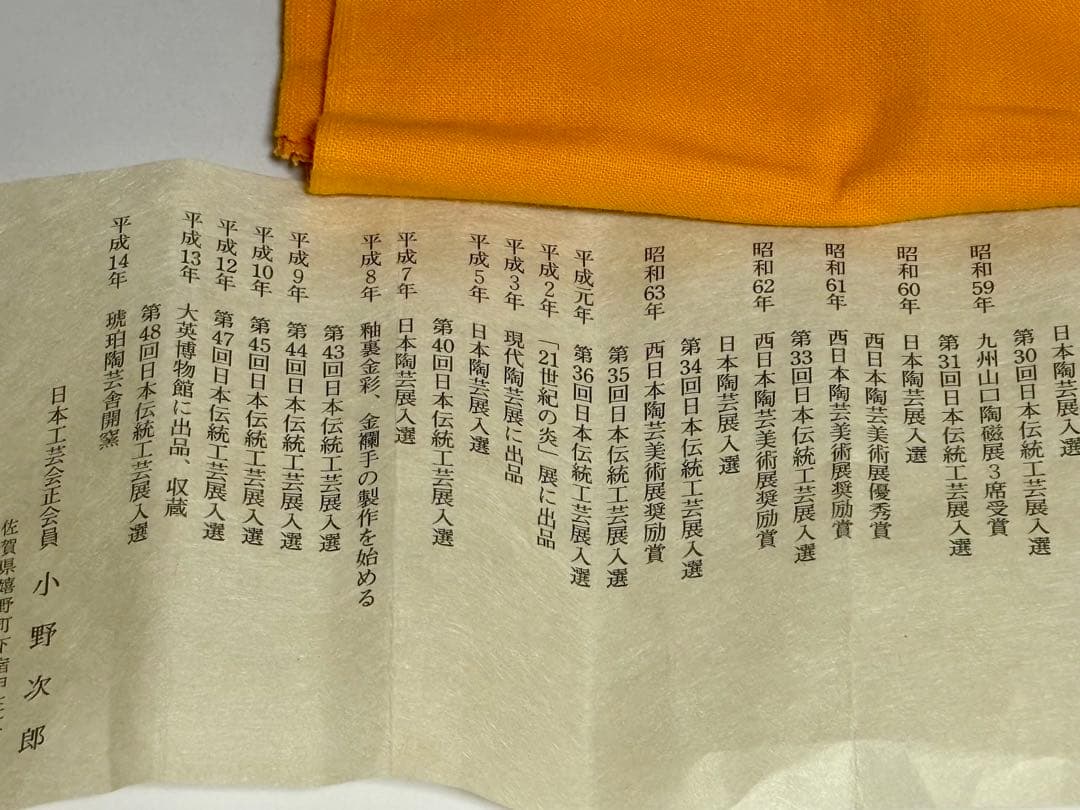 日本陶芸展入選
第30回日本伝統工芸展入選
昭和59年 九州山口陶磁展3席受賞
第31回日本伝統工芸展入選
昭和60年 日本陶芸展入選
西日本陶芸美術展優秀賞
昭和61年 西日本陶芸美術展奨励賞
第33回日本伝統工芸展入選
昭和62年 西日本陶芸美術展奨励賞
日本陶芸展入選
第34回日本伝統工芸展入選
昭和63年 西日本陶芸美術展奨励賞
第35回日本伝統工芸展入選
平成元年 第36回日本伝統工芸展入選
平成2年 「21世紀の炎」展に出品
平成3年 現代陶芸展に出品
平成5年 日本陶芸展入選
第40回日本伝統工芸展入選
平成7年 日本陶芸展入選
平成8年 釉裏金彩、金襴手の製作を始める
第43回日本伝統工芸展入選
平成9年 第44回日本伝統工芸展入選
平成10年 第45回日本伝統工芸展入選
平成12年 第47回日本伝統工芸展入選
平成13年 大英博物館に出品、収蔵
第48回日本伝統工芸展入選
平成14年 琥珀陶芸舎開窯
日本工芸会正会員 小野次郎
佐賀県嬉野町下宿